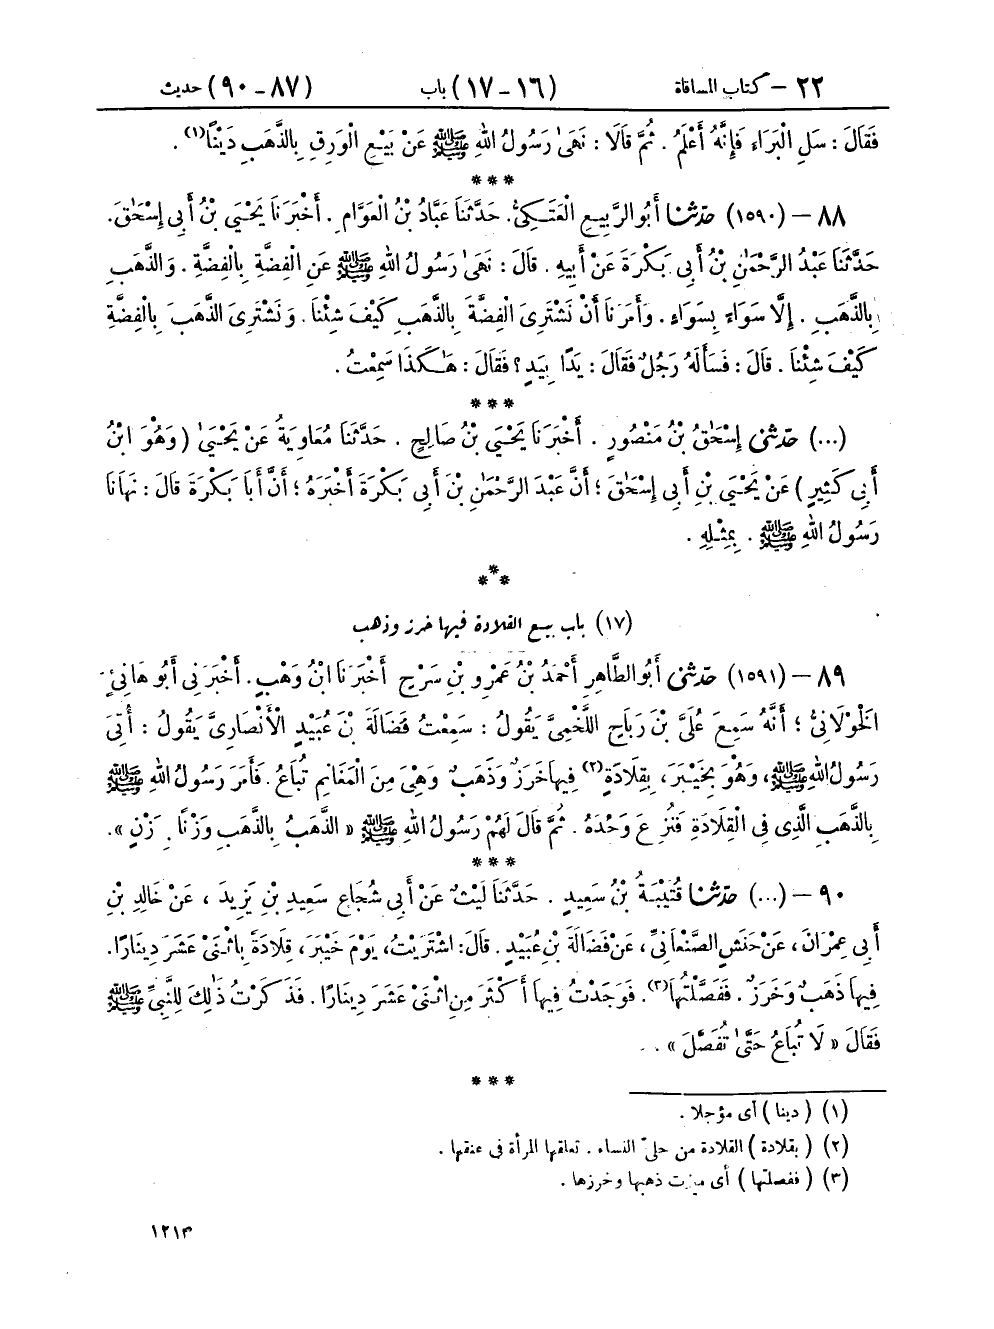 ٢٢ – كتاب المساقاة (١٦-١٧) باب (٨٧-٩٠) حديث
فَقَالَ : سَلِ الْبَرَاءَ فَإِنَّهُ أَعْلَمُ . ثُمَّ قَالَا : نَهَىٰ رَسُولُ اللهِ ﷺ عَنْ بَيْعِ الْوَرِقِ بِالذَّهَبِ دَيْنًا(١) .
***
٨٨ – (١٥٩٠) حَدَّثَنَا أَبُو الرَّبِيعِ الْعَتَكِيُّ. حَدَّثَنَا عَبَّادُ بْنُ الْعَوَّامِ . أَخْبَرَنَا يَحْيَى بْنُ أَبِي إِسْحَٰقَ.
حَدَّثَنَا عَبْدُ الرَّحْمَٰنِ بْنُ أَبِي بَكْرَةَ عَنْ أَبِيهِ . قَالَ : نَهَىٰ رَسُولُ اللهِ ﷺ عَنِ الْفِضَّةِ بِالْفِضَّةِ . وَالذَّهَبِ
بِالذَّهَبِ . إِلَّا سَوَاءً بِسَوَاءٍ . وَأَمَرَنَا أَنْ نَشْتَرِيَ الْفِضَّةَ بِالذَّهَبِ كَيْفَ شِئْنَا . وَنَشْتَرِيَ الذَّهَبَ بِالْفِضَّةِ
كَيْفَ شِئْنَا . قَالَ : فَسَأَلَهُ رَجُلٌ فَقَالَ : يَدًا بِيَدٍ ؟ فَقَالَ : هَٰكَذَا سَمِعْتُ .
***
(...) حَدَّثَنِي إِسْحَٰقُ بْنُ مَنْصُورٍ . أَخْبَرَنَا يَحْيَى بْنُ صَالِحٍ . حَدَّثَنَا مُعَاوِيَةُ عَنْ يَحْيَىٰ ( وَهُوَ ابْنُ
أَبِي كَثِيرٍ ) عَنْ يَحْيَى بْنِ أَبِي إِسْحَٰقَ ؛ أَنَّ عَبْدَ الرَّحْمَٰنِ بْنَ أَبِي بَكْرَةَ أَخْبَرَهُ ؛ أَنَّ أَبَا بَكْرَةَ قَالَ : نَهَانَا
رَسُولُ اللهِ ﷺ . بِمِثْلِهِ .
***
(١٧) باب بيع القلادة فيها خرز وذهب
٨٩ – (١٥٩١) حَدَّثَنِي أَبُو الطَّاهِرِ أَحْمَدُ بْنُ عَمْرِو بْنِ سَرْحٍ . أَخْبَرَنَا ابْنُ وَهْبٍ . أَخْبَرَنِي أَبُو هَانِئٍ
الْخَوْلَانِيُّ ؛ أَنَّهُ سَمِعَ عُلَيَّ بْنَ رَبَاحٍ اللَّخْمِيَّ يَقُولُ : سَمِعْتُ فَضَالَةَ بْنَ عُبَيْدٍ الْأَنْصَارِيَّ يَقُولُ : أُتِيَ
رَسُولُ اللهِ ﷺ، وَهُوَ بِخَيْبَرَ ، بِقِلَادَةٍ(٢) فِيهَا خَرَزٌ وَذَهَبٌ وَهِيَ مِنَ الْمَغَانِمِ تُبَاعُ . فَأَمَرَ رَسُولُ اللهِ ﷺ
بِالذَّهَبِ الَّذِي فِي الْقِلَادَةِ فَنُزِعَ وَحْدَهُ . ثُمَّ قَالَ لَهُمْ رَسُولُ اللهِ ﷺ « الذَّهَبُ بِالذَّهَبِ وَزْنًا بِوَزْنٍ ».
***
٩٠ – (...) حَدَّثَنَا قُتَيْبَةُ بْنُ سَعِيدٍ . حَدَّثَنَا لَيْثٌ عَنْ أَبِي شُجَاعٍ سَعِيدِ بْنِ يَزِيدَ ، عَنْ خَالِدِ بْنِ
أَبِي عِمْرَانَ ، عَنْ حَنَشٍ الصَّنْعَانِيِّ ، عَنْ فَضَالَةَ بْنِ عُبَيْدٍ . قَالَ: اشْتَرَيْتُ، يَوْمَ خَيْبَرَ، قِلَادَةً بِاثْنَيْ عَشَرَ دِينَارًا.
فِيهَا ذَهَبٌ وَخَرَزٌ . فَفَصَّلْتُهَا(٣). فَوَجَدْتُ فِيهَا أَكْثَرَ مِنِ اثْنَيْ عَشَرَ دِينَارًا . فَذَكَرْتُ ذَٰلِكَ لِلنَّبِيِّ ﷺ
فَقَالَ « لَا تُبَاعُ حَتَّىٰ تُفَصَّلَ » .
***
(١) ( دينا ) أى مؤجلا .
(٢) ( بقلادة ) القلادة من حلىّ النساء . تعلقها المرأة فى عنقها .
(٣) ( ففصلتها ) أى ميزت ذهبها وخرزها .
١٢١٣